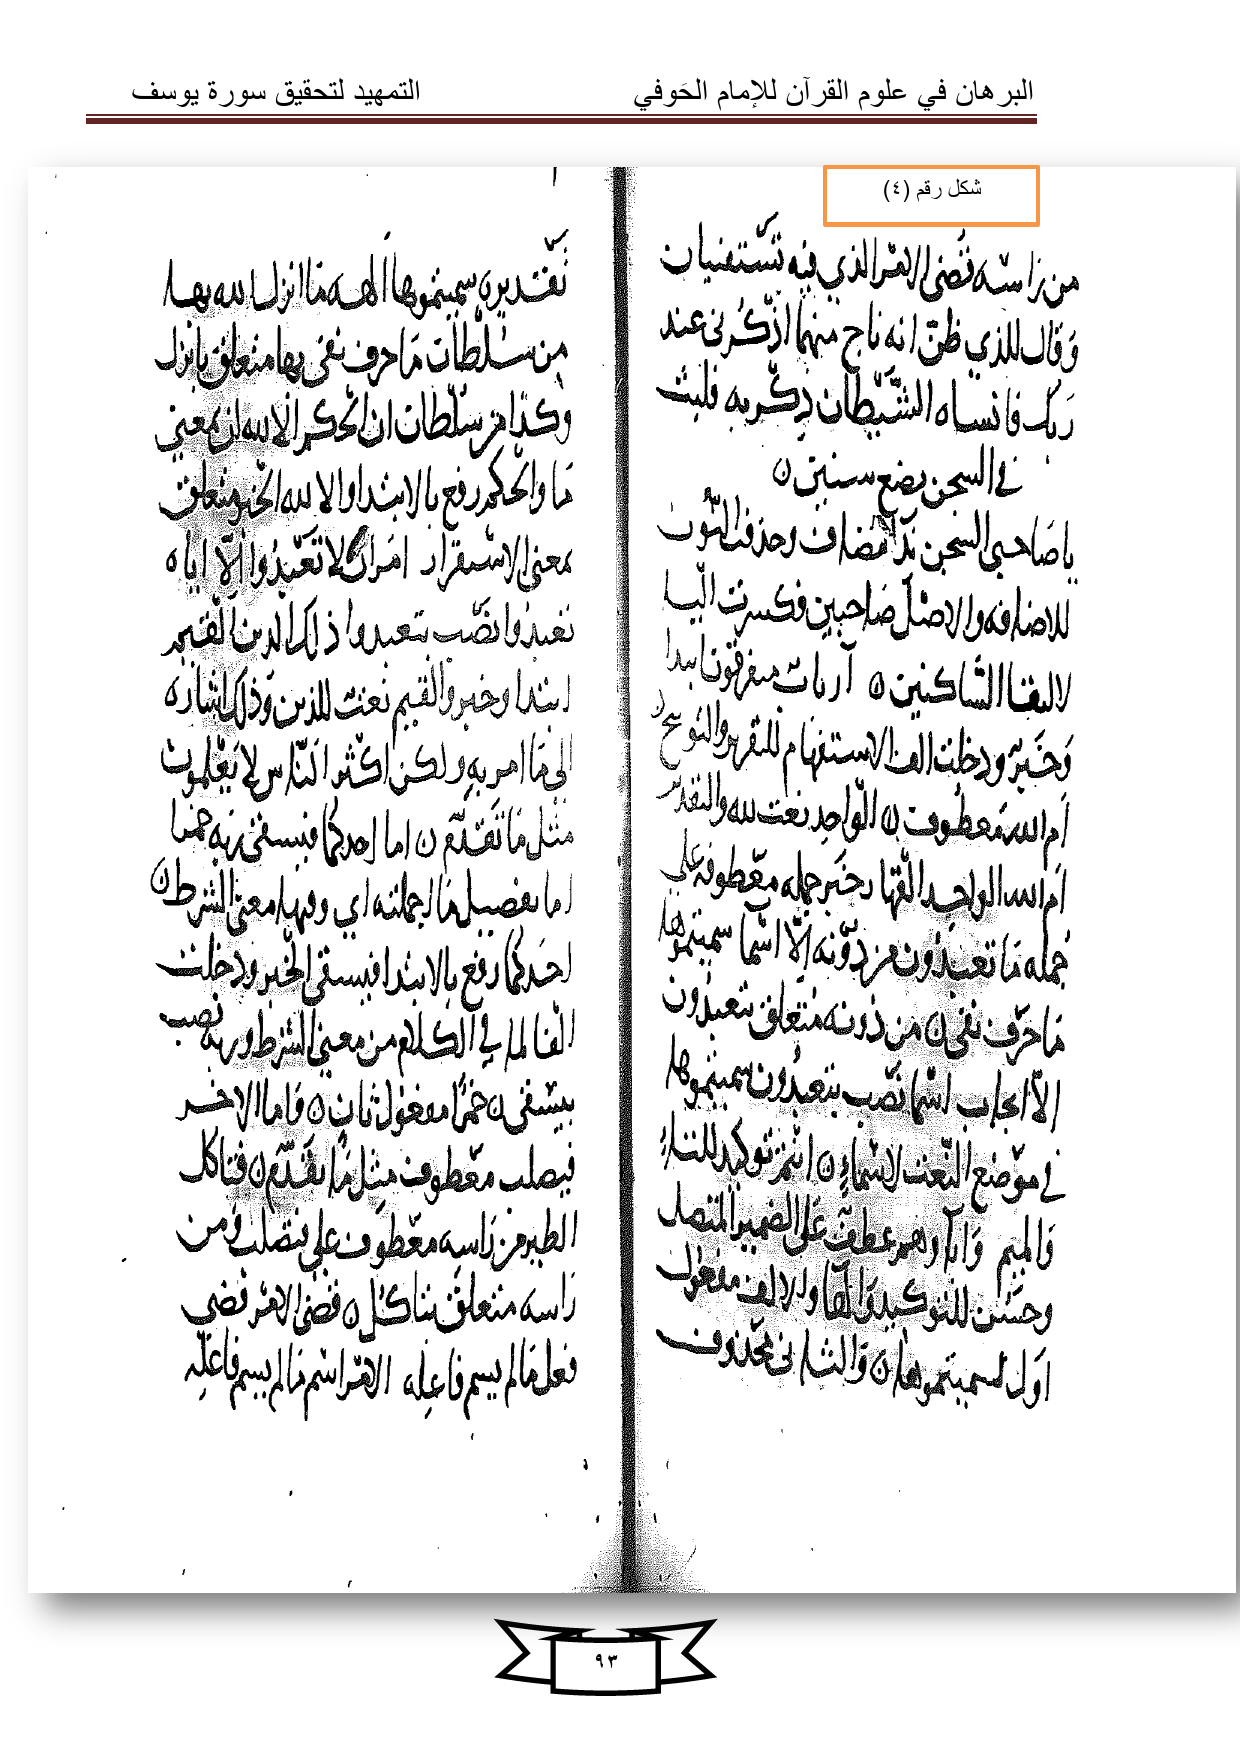 البرهان في علوم القرآن للإمام الحَوفي
التمهيد لتحقيق سورة يوسف
شكل رقم (٤)
من راسه قضى الامر الذي فيه تستفتيان
وقال للذي ظن انه ناج منهما اذكرني عند
ربك فانساه الشيطان ذكر ربه فلبث
في السجن بضع سنين ن
يا صاحبي السجن ندا مضاف وحذفت النون
للاضافه والاصل صاحبين وكسرت اليا
لالتقا الساكنين ن آرباب متفرقون ابتدا
وخبر ودخلت الف الاستفهام للتقرير والتوبيخ
ام الله معطوف ن الواحد نعت لله والتقدير
ام الله الواحد القهار خبر جمله معطوفه على
جمله ما تعبدون من دونه الا اسما سميتموها
ما حرف نفي ن من دونه متعلق بتعبدون
الا ايجاب اسما نصب بتعبدون سميتموها
في موضع النعت لاسماء ن انتم توكيد للتاء
والميم واباوهم عطف على الضمير المتصل
وحسن للتوكيد والها والالف مفعول
اول لسميتموها ن والثاني محذوف
تقديره سميتموها الهه ما انزل الله بها
من سلطان ما حرف نفي بها متعلق بانزل
وكذا من سلطان ان الحكم الا لله ان بمعنى
ما والحكم رفع بالابتدا والا لله الخبر متعلق
بمعنى الاستقرار امر ان لا تعبدوا الا اياه
تعبدوا نصب بتعبدوا ذلك الدين القيم
ابتدا وخبر والقيم نعت للدين وذلك اشاره
الى ما امر به ولكن اكثر الناس لا يعلمون
مثل ما تقدم ن اما احدكما فيسقي ربه خمرا
اما تفصيل ما اجملته اي وفيها معنى الشرط ن
احدكما رفع بالابتدا فيسقي الخبر ودخلت
الفا لما في الكلام من معنى الشرط وربه نصب
بيسقي ن خمرا مفعول ثان ن واما الاخر
فيصلب معطوف مثل ما تقدم ن فتاكل
الطير من راسه معطوف على فيصلب ومن
راسه متعلق بتاكل ن قضى الامر قضي
فعل ما لم يسم فاعله الامر اسم ما لم يسم فاعله
٩٣